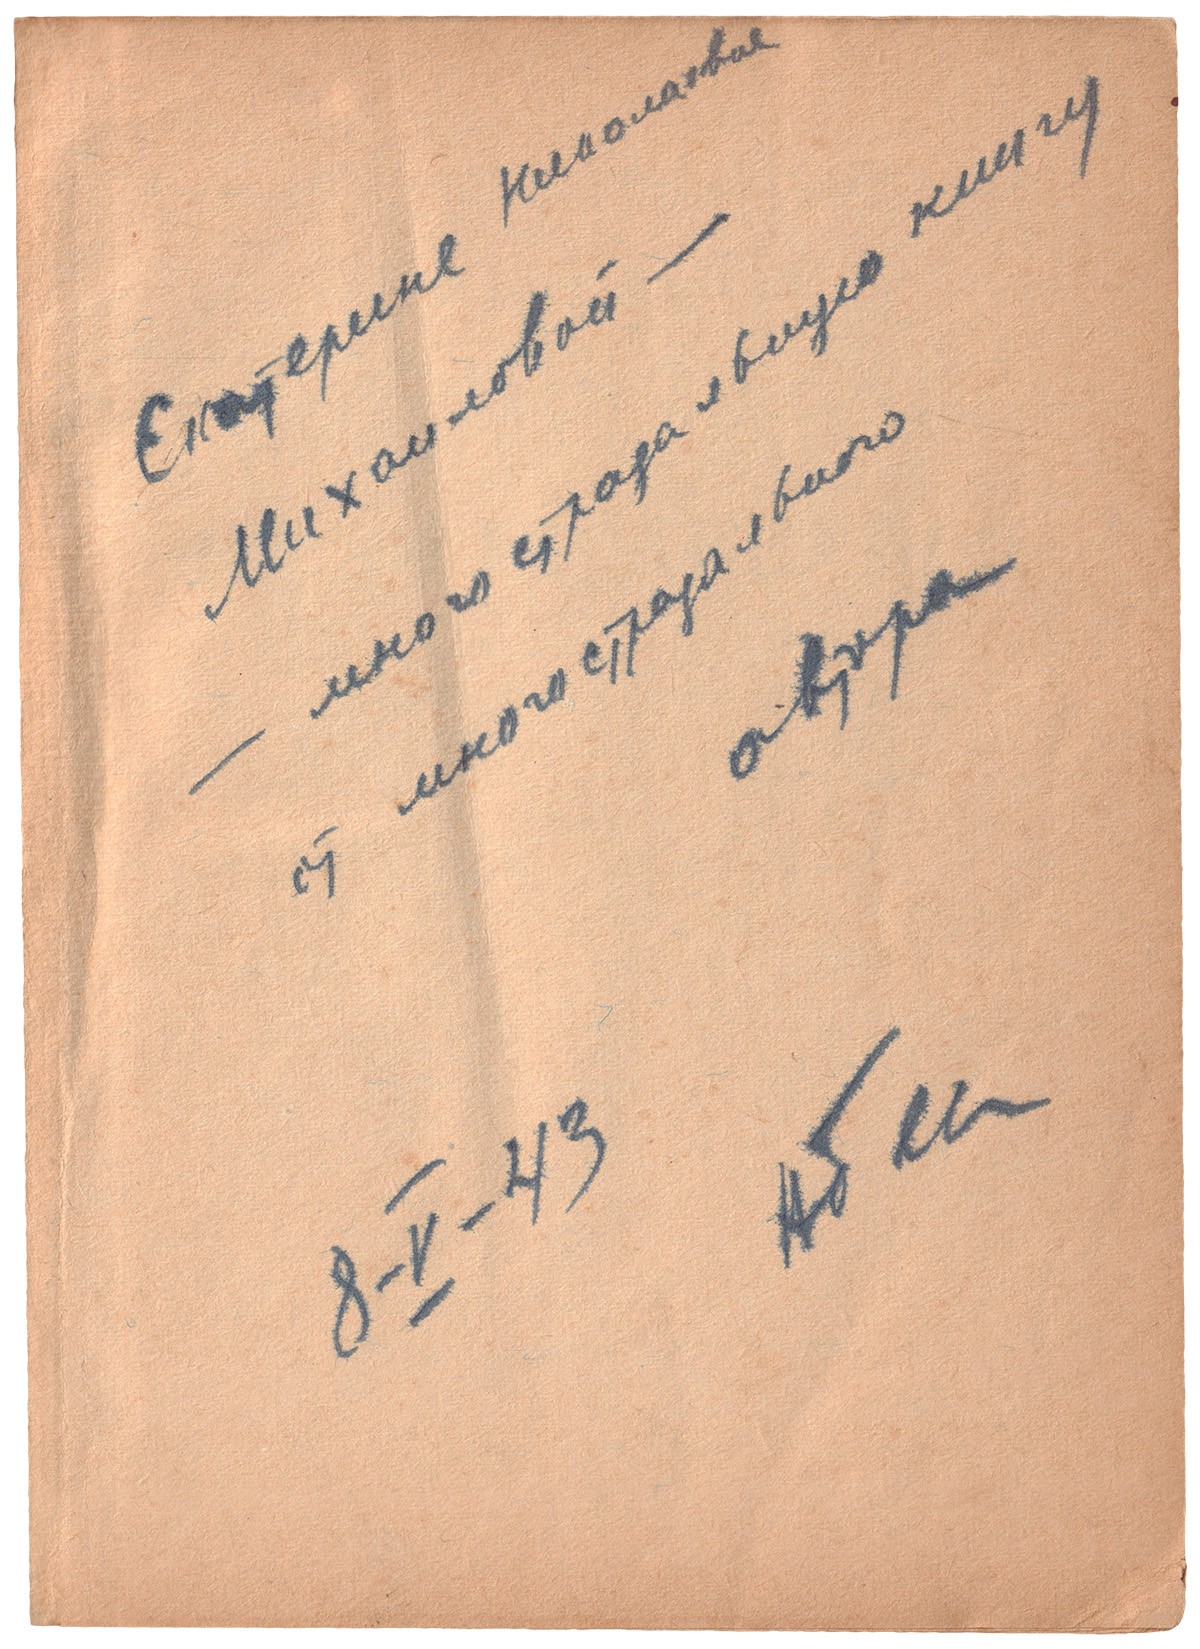 Екатерине Николаевне
Михайловой —
— многострадальную книгу
от многострадального
автора
8-V-43